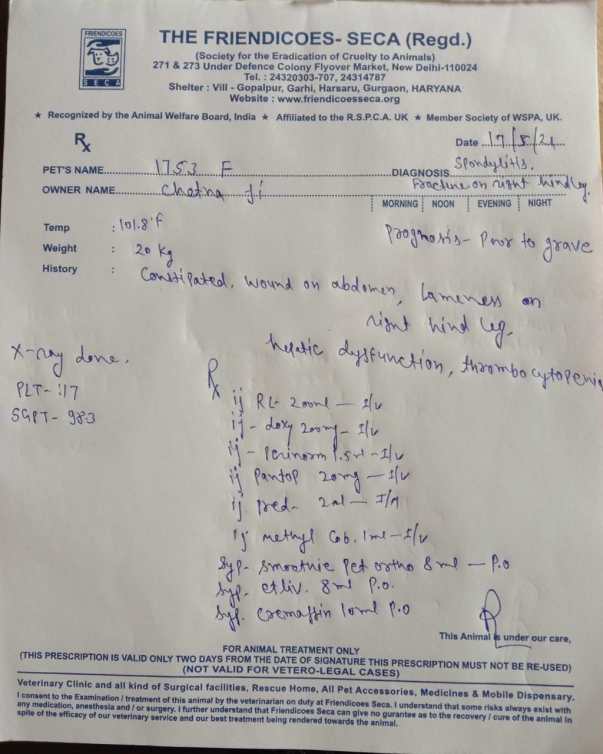 FRIENDICOES
SECA
THE FRIENDICOES- SECA (Regd.)
(Society for the Eradication of Cruelty to Animals)
271 & 273 Under Defence Colony Flyover Market, New Delhi-110024
Tel. : 24320303-707, 24314787
Shelter : Vill - Gopalpur, Garhi, Harsaru, Gurgaon, HARYANA
Website : www.friendicoesseca.org
★ Recognized by the Animal Welfare Board, India ★ Affiliated to the R.S.P.C.A. UK ★ Member Society of WSPA, UK.
Rx
Date 17/5/21
PET'S NAME 1753 F DIAGNOSIS Spondylitis.
OWNER NAME Chetna Ji Fracture on right hind leg.
MORNING NOON EVENING NIGHT
Temp : 101.8°F
Prognosis - Poor to grave
Weight : 20 Kg
History : Constipated, wound on abdomen, Lameness on
right hind leg.
hepatic dysfunction, thrombocytopenia
X-ray done.
PLT - 117
SGPT - 983
Rx
ij RL 200ml — I/v
ij - doxy 200mg - I/v
ij - Perinorm 1.5ml - I/v
ij Pantop 20mg — I/v
ij pred - 2ml — I/M
ij methyl Cob. 1ml - I/v
Syp. Smoothie Pet ortho 8ml — P.O
Syp. etliv. 8ml P.O.
Syp. Cremaffin 10ml P.O
This Animal is under our care,
FOR ANIMAL TREATMENT ONLY
(THIS PRESCRIPTION IS VALID ONLY TWO DAYS FROM THE DATE OF SIGNATURE THIS PRESCRIPTION MUST NOT BE RE-USED)
(NOT VALID FOR VETERO-LEGAL CASES)
Veterinary Clinic and all kind of Surgical facilities, Rescue Home, All Pet Accessories, Medicines & Mobile Dispensary.
I consent to the Examination / treatment of this animal by the veterinarian on duty at Friendicoes Seca. I understand that some risks always exist with
any medication, anesthesia and / or surgery. I further understand that Friendicoes Seca can give no gurantee as to the recovery / cure of the animal in
spite of the efficacy of our veterinary service and our best treatment being rendered towards the animal.